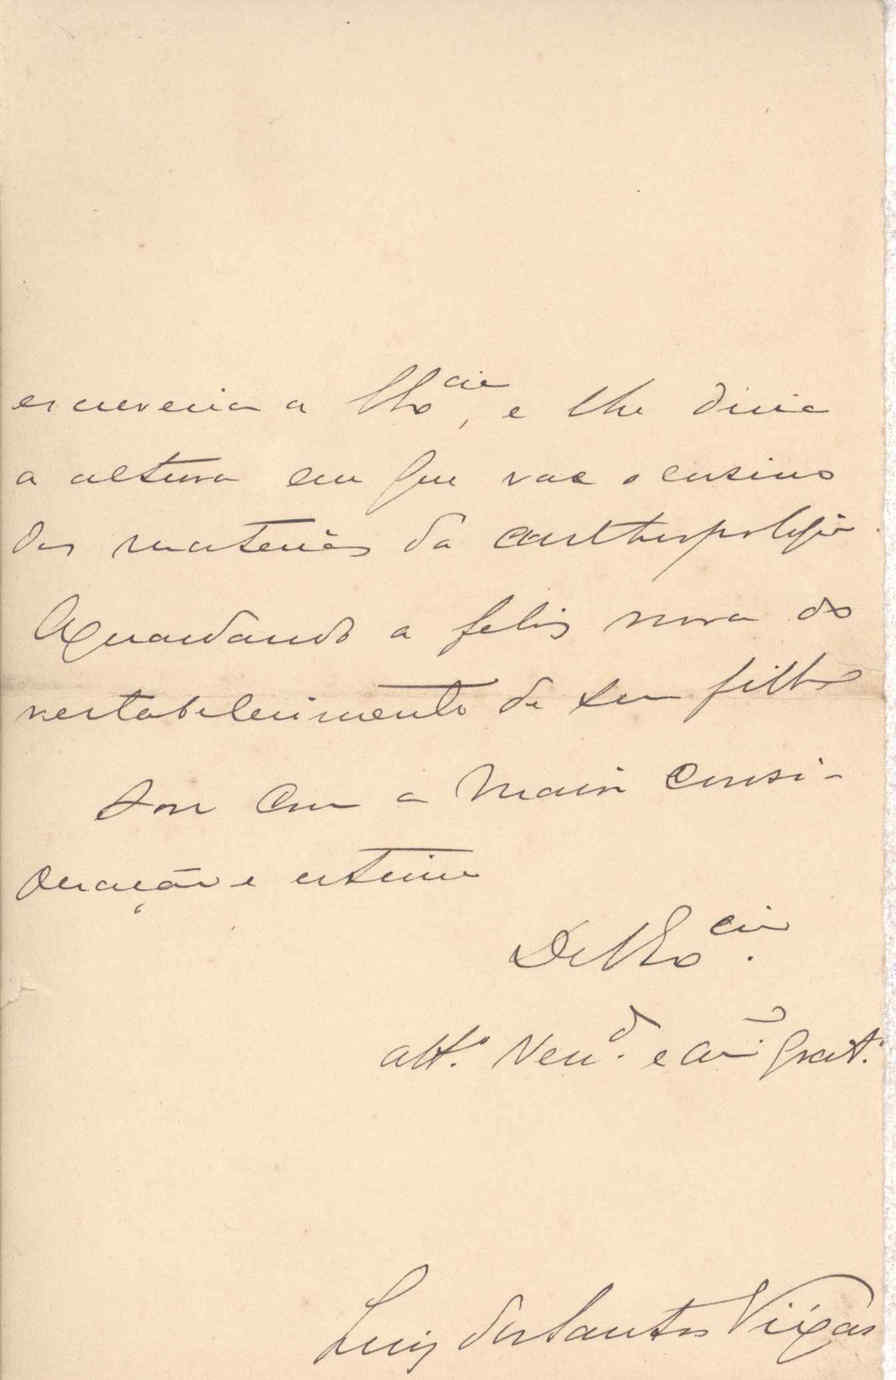 escreveria a V. Ex.cia, e lhe diria
a altura em que vae o ensino
das materias da anthropologia.
Aguardando a feliz nova do
restabelecimento de seu filho
Sou com a maior consi-
deração e estima
De V. Ex.cia.
att.º Ven.d e am.º grat.º
Luiz dos Santos Viegas